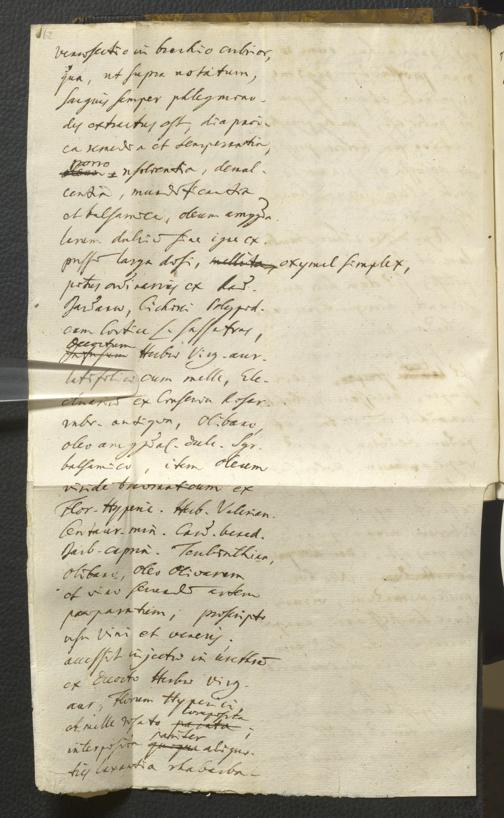 162
venæsectio in brachio crebrior,
qua, ut supra notatum,
sanguis semper phlegmono-
des extractus est, diapnoi-
ca remedia et temperantia,
porro resolventia, demul-
centia, mundificantia
et balsamica, oleum amygda-
larum dulcium sine igne ex-
pressum larga dosi, oxymel simplex,
potus ordinarius ex Rad.
Bardanæ, Cichorei Polypod.
cum Cortice Sassafras,
Decoctum
infusum Herbæ Virg-aur-
latifoliæ cum melle, Ele-
ctuarium ex Conserva Rosar-
rubr- antiqua, olibano,
oleo amygdal- dulc- Syr-
balsamico, item oleum
viride ex
Flor- Hyperic- Herb- Valerian-
Centaur-min- Card- bened-
Barb-caprin- Terebinthina,
olibano, oleo olivarum
et vino secundum artem
præparatum; proscripto
usu vini et veneris.
accessit injectio in urethram
ex Decocto Herbæ Virg-
aur, Florum Hyperici,
et melle rosato composita
parata ;
interposita pariter
quoque aliquo-
ties laxantia rhabarba-